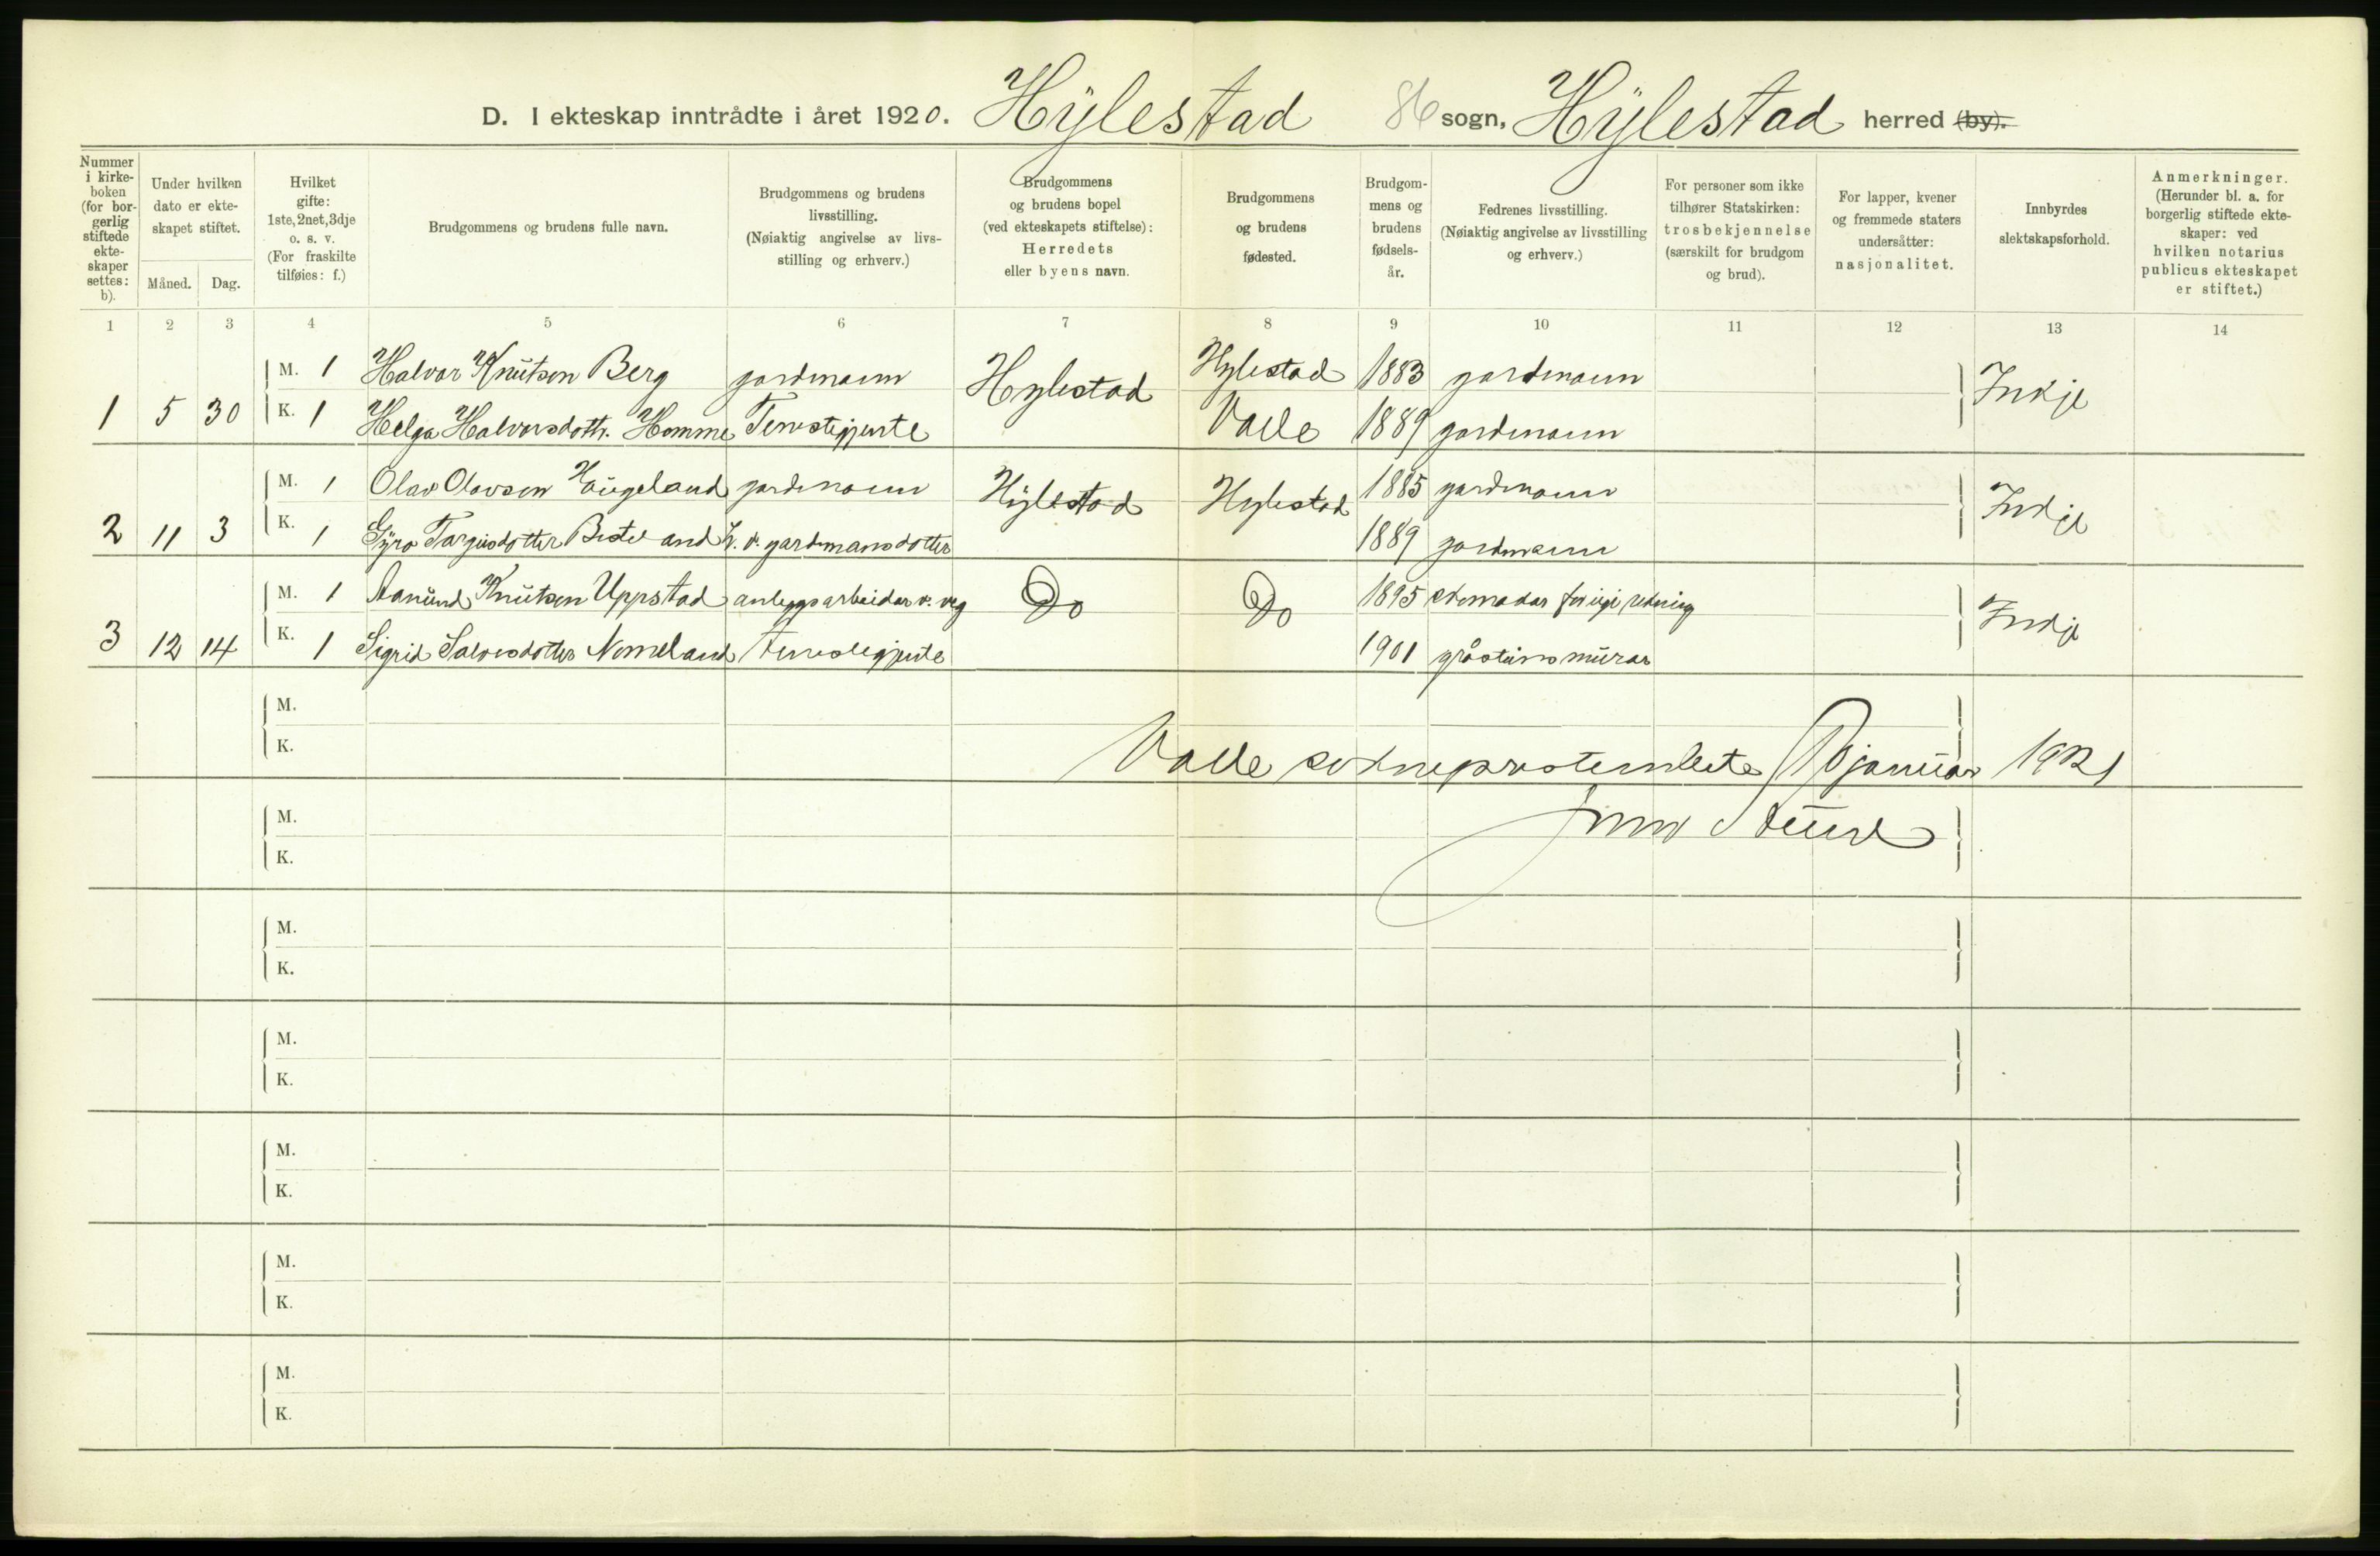 D. I ekteskap inntrådte i året 1920. Hylestad 86 sogn, Hylestad herred (by).
Nummer i kirke-boken (for bor-gerlig stiftede ekte-skaper settes: b).
Under hvilken dato er ekte-skapet stiftet.
Måned. Dag.
Hvilket gifte: 1ste, 2net, 3dje o. s. v. (For fraskilte tilføies: f.)
Brudgommens og brudens fulle navn.
Brudgommens og brudens livsstilling. (Nøiaktig angivelse av livs-stilling og erhverv.)
Brudgommens og brudens bopel (ved ekteskapets stiftelse): Herredets eller byens navn.
Brudgommens og brudens fødested.
Brudgom-mens og brudens fødsels-år.
Fedrenes livsstilling. (Nøiaktig angivelse av livsstilling og erhverv.)
For personer som ikke tilhører Statskirken: trosbekjennelse (særskilt for brudgom og brud).
For lapper, kvener og fremmede staters undersåtter: nasjonalitet.
Innbyrdes slektskapsforhold.
Anmerkninger. (Herunder bl. a. for borgerlig stiftede ekte-skaper: ved hvilken notarius publicus ekteskapet er stiftet.)
1 2 3 4 5 6 7 8 9 10 11 12 13 14
M. 1 Halvor Knutson Berg gardmann Hylestad Hylestad 1883 gardmann Inkje
1 5 30 K. 1 Helga Halvorsdottr. Homme Tenestgjente Valle 1889 gardmann
M. 1 Olav Olavson Haugeland gardmann Hylestad Hylestad 1885 gardmann Inkje
2 11 3 K. 1 Gyro Targjusdotter Besteland gardmansdotter 1889 gardmann
M. 1 Aanund Knutson Uppstad anleggsarbeidar v. veg Do Do 1895 Inkje
3 12 14 K. 1 Sigrid Salvesdotter Nomeland tenestegjente 1901 gråsteinsmurar
M.
K.
Valle januar 1921
M.
K.
M.
K.
M.
K.
M.
K.
M.
K.
M.
K.